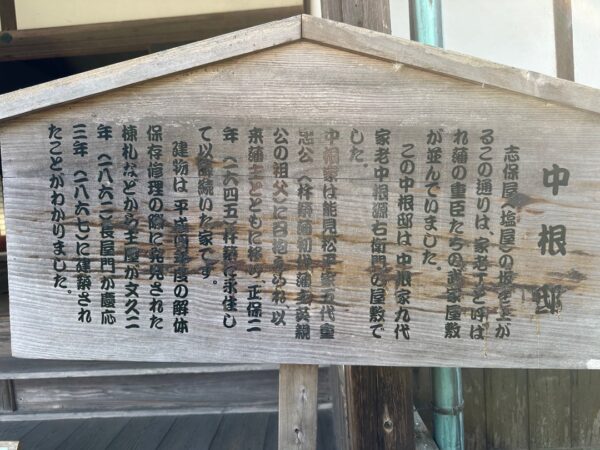 中根邸
志保屋(塩屋)の坂を上が
るこの通りは、家老丁と呼ば
れ藩の重臣たちの武家屋敷
が並んでいました。
この中根邸は中根家九代
家老中根源右衛門の屋敷で
した。
中根家は能見松平家五代重
忠公(杵築藩初代藩主英親
公の祖父)に召抱えられ以
来藩主とともに移り正保二
年(一六四五)杵築に永住し
て以後続いた家です。
建物は平成四年度の解体
保存修理の際に発見された
棟札などから主屋が文久二
年(一八六二)長屋門が慶応
三年(一八六七)に建築され
たことがわかりました。